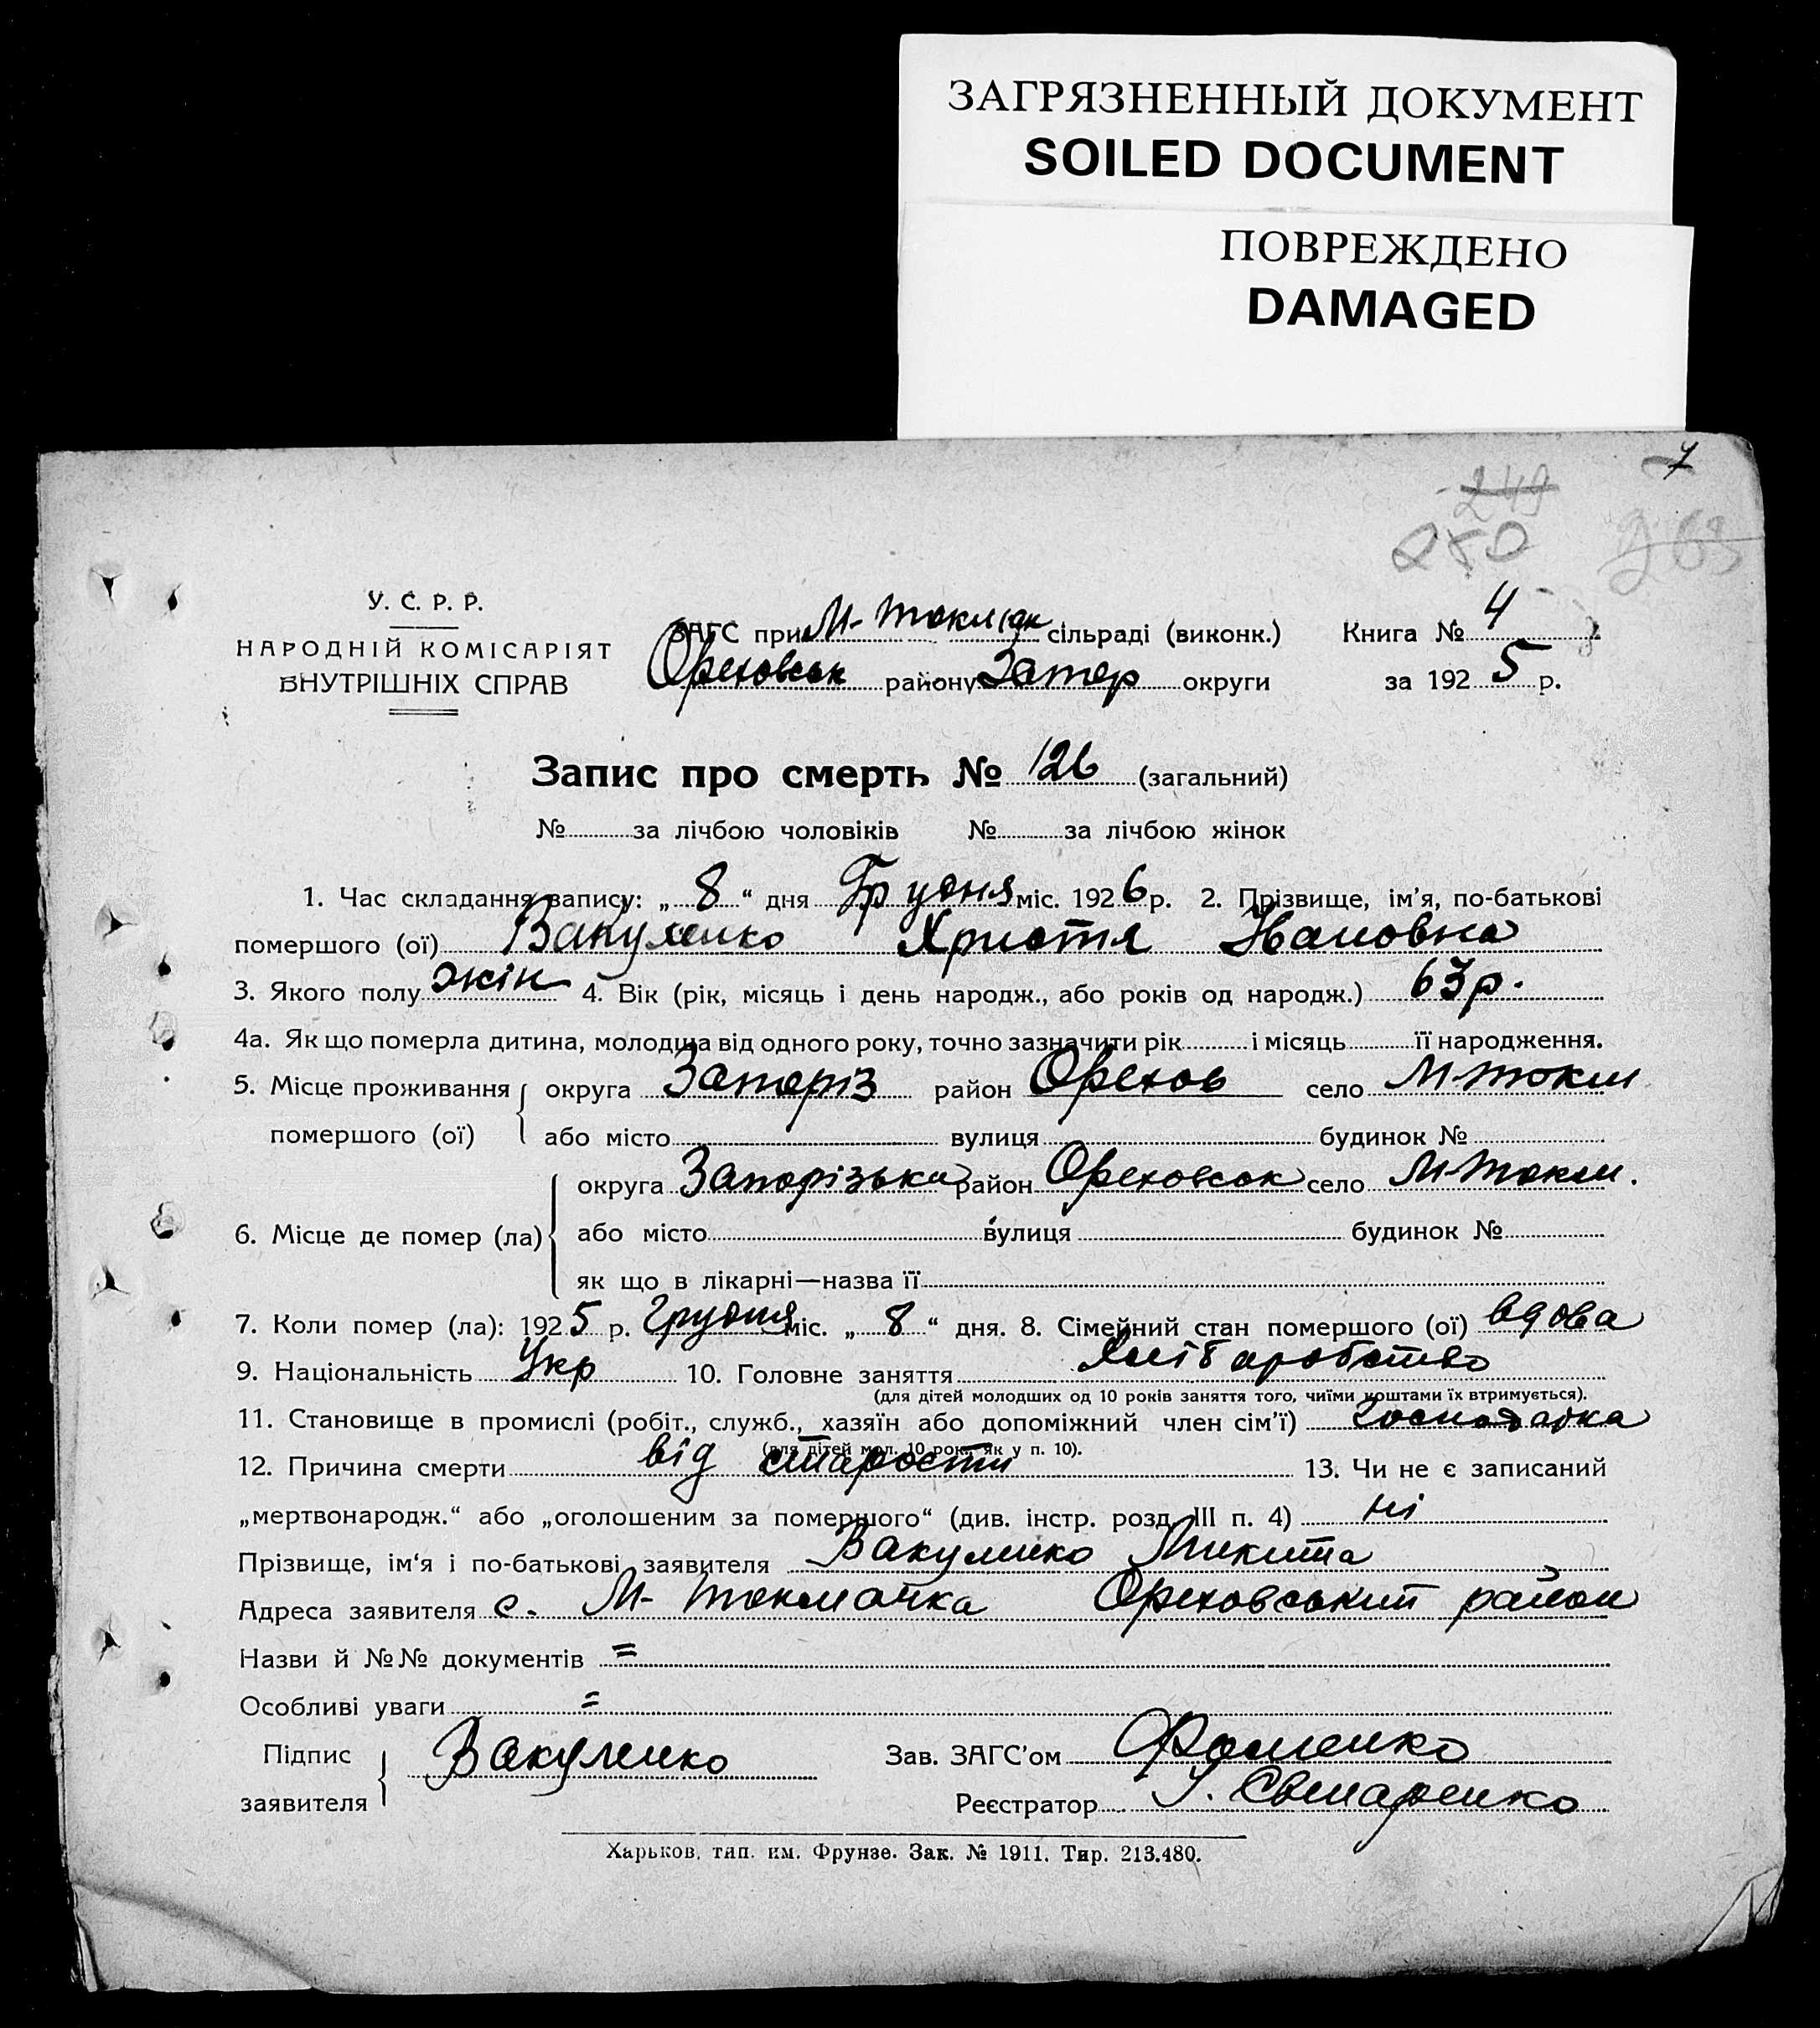 ЗАГРЯЗНЕННЫЙ ДОКУМЕНТ
SOILED DOCUMENT
ПОВРЕЖДЕНО
DAMAGED
7
249
250
963
У. С. Р. Р.
НАРОДНІЙ КОМІСАРІЯТ
ВНУТРІШНІХ СПРАВ
ЗАГС при М-Токмач сільраді (виконк.) Книга № 4
Ореховськ району Запор округи за 1925 р.
Запис про смерть № 126 (загальний)
№ за лічбою чоловіків № за лічбою жінок
1. Час складання запису: „8“ дня Грудня міс. 1926 р. 2. Прізвище, ім'я, по-батькові
помершого (ої) Вакуленко Христя Ивановна
3. Якого полу жін 4. Вік (рік, місяць і день народж., або років од народж.) 63 р.
4а. Як що померла дитина, молодша від одного року, точно зазначити рік і місяць її народження.
5. Місце проживання округа Запоріз район Орехов село М-Токм
помершого (ої) або місто вулиця будинок №
округа Запорізька район Ореховськ село М-Токм.
6. Місце де помер (ла) або місто вулиця будинок №
як що в лікарні—назва її
7. Коли помер (ла): 1925 р. Грудня міс. „8“ дня. 8. Сімейний стан помершого (ої) вдова
9. Національність Укр 10. Головне заняття Хліборобство
(для дітей молодших од 10 років заняття того, чиїми коштами їх втримується).
11. Становище в промислі (робіт., служб., хазяїн або допоміжний член сім'ї) господарка
(для дітей мол. 10 рок. як у п. 10).
12. Причина смерти від старости 13. Чи не є записаний
„мертвонародж.“ або „оголошеним за помершого“ (див. інстр. розд. III п. 4) ні
Прізвище, ім'я і по-батькові заявителя Вакуленко Микита
Адреса заявителя с. М-Токмачка Ореховський район
Назви й №№ документів =
Особливі уваги =
Підпис заявителя Вакуленко Зав. ЗАГС'ом Фоменко
Реєстратор
Харьков, тип. им. Фрунзе. Зак. № 1911. Тир. 213.480.